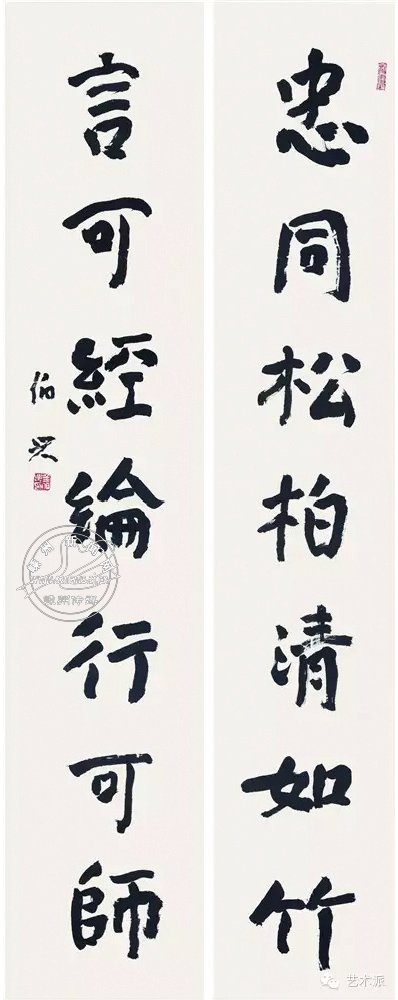 忠同松柏清如竹
言可經綸行可師
伯興
艺术派